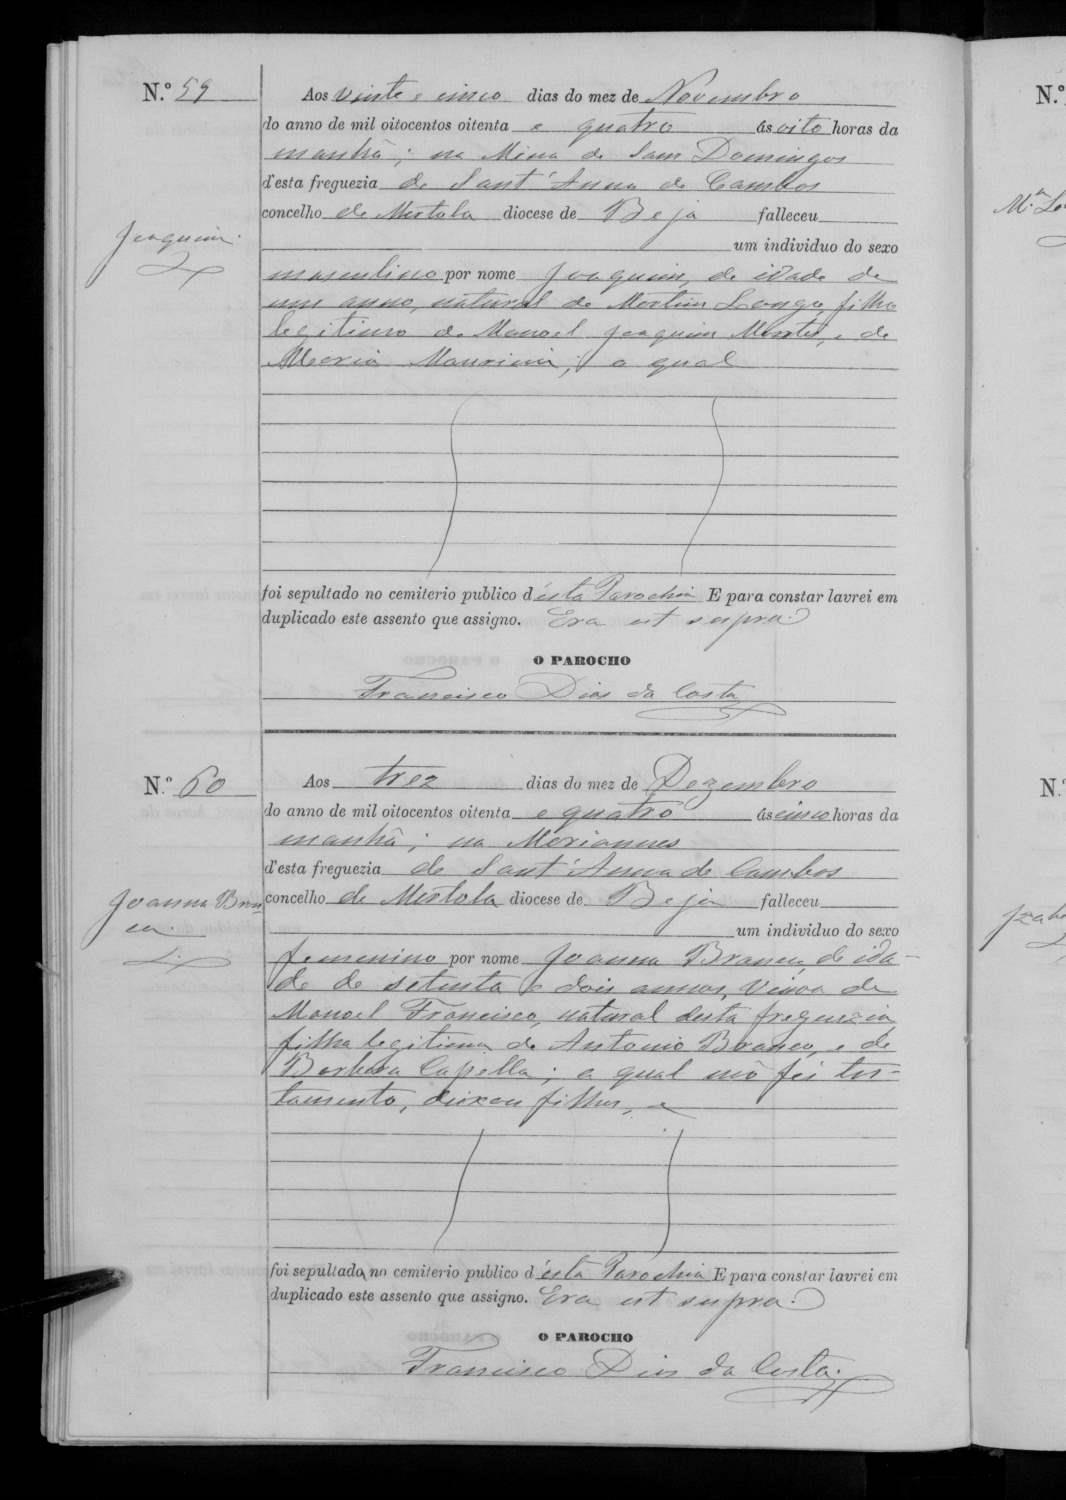 N.º 59
Aos vinte e cinco dias do mez de Novembro
do anno de mil oitocentos oitenta e quatro ás oito horas da
manhã; na Mina de Sam Domingos
d'esta freguezia de Sant'Anna de Cambos
concelho de Mertola diocese de Beja falleceu
Joaquim.
um individuo do sexo
masculino por nome Joaquim, de idade de
um anno, natural de Martim Longo, filho
legitimo de Manoel Joaquim e de
Maria ; o qual
foi sepultado no cemiterio publico d'esta Parochia E para constar lavrei em
duplicado este assento que assigno. Era ut supra.
O PAROCHO
Francisco Dias da Costa
N.º 60
Aos trez dias do mez de Dezembro
do anno de mil oitocentos oitenta e quatro ás cinco horas da
manhã; na Mariannes
d'esta freguezia de Sant'Anna de Cambos
Joanna Bran
ca.
concelho de Mertola diocese de Beja falleceu
um individuo do sexo
femenino por nome Joanna Branca, de ida-
de de setenta e dois annos, viuva de
Manoel Francisco, natural desta freguezia
filha legitima de Antonio Branco, e de
Barbara Capella; a qual não fez tes-
tamento, deixou filhos, e
foi sepultada no cemiterio publico d'esta Parochia E para constar lavrei em
duplicado este assento que assigno. Era ut supra.
O PAROCHO
Francisco Dias da Costa.
N.º
M.ª
N.º